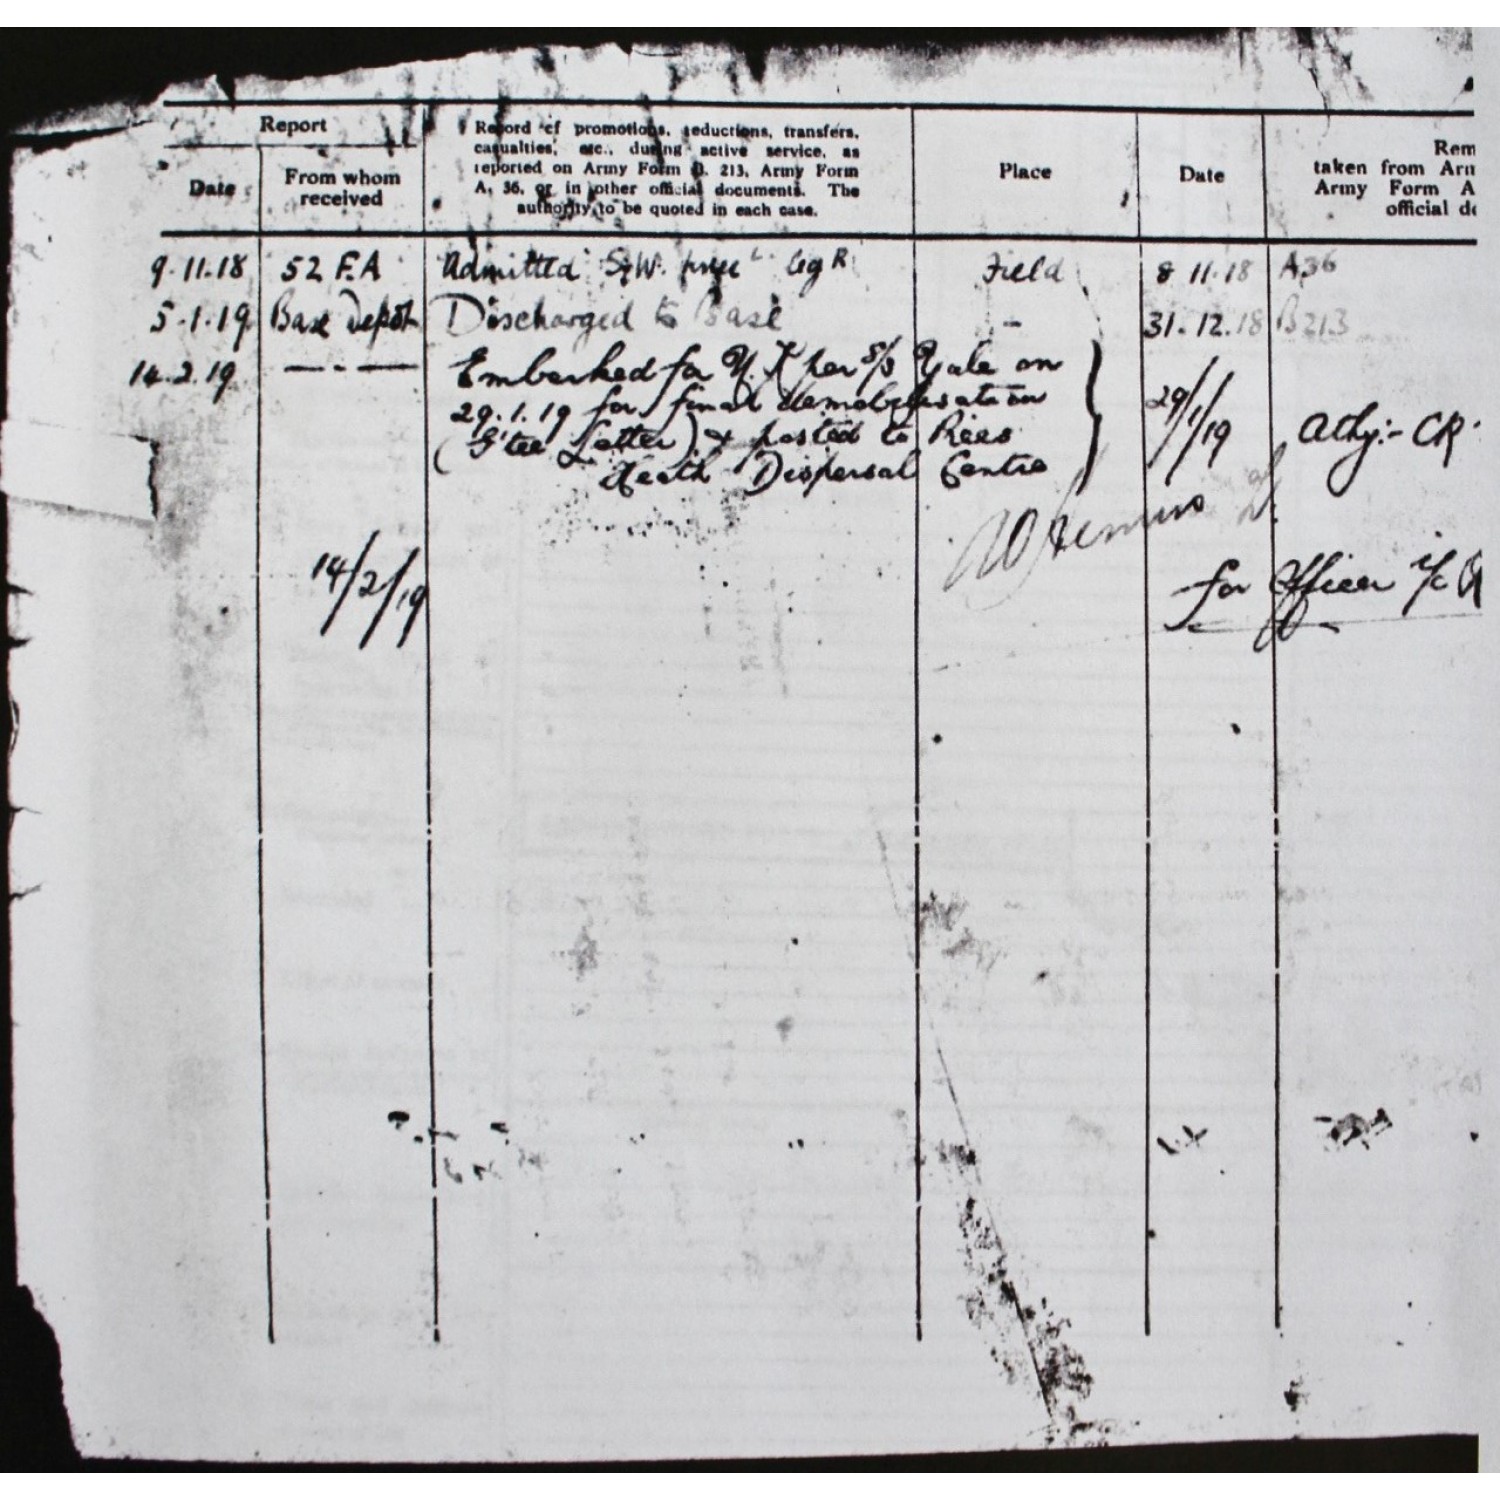 Report
Date
From whom
received
Record of promotions, reductions, transfers,
casualties, etc., during active service, as
reported on Army Form B. 213, Army Form
A. 36, or in other official documents. The
authority to be quoted in each case.
Place
Date
Rem
taken from Arm
Army Form A
official do
9.11.18 52 F.A Admitted S.W. knee L leg R Field 8 11.18 A36
5.1.19 Base Depôt Discharged to Base – 31.12.18 B213
14.2.19 —·— Embarked for U.K per S/S Yale on
29.1.19 for final demobilisation 29/1/19
(G'tee Letter) & posted to Rees Athy:- CR
Heath Dispersal Centre
14/2/19
for Officer i/c